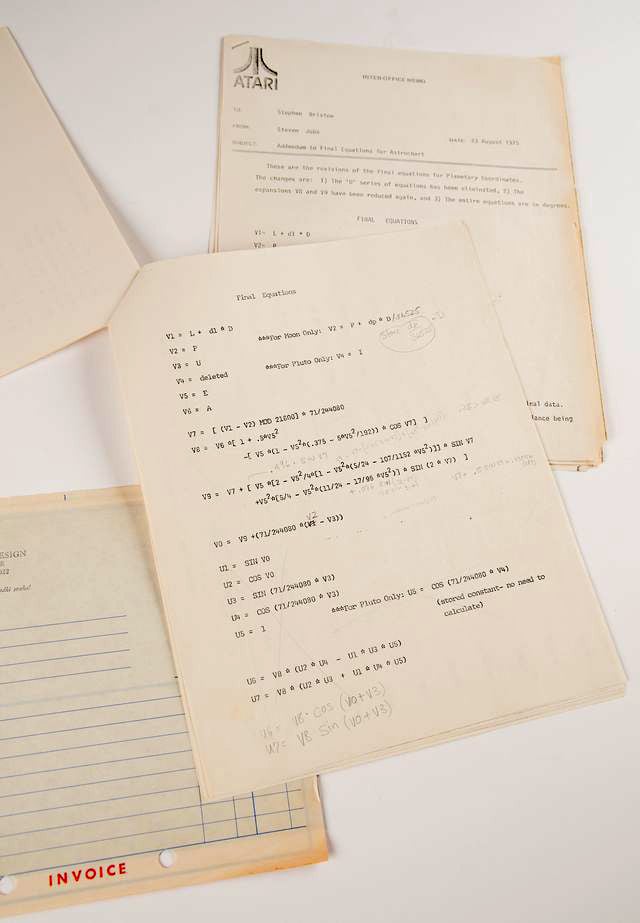 ATARI
INTER-OFFICE MEMO
TO: Stephen Bristow
FROM: Steven Jobs
Date: 23 August 1975
SUBJECT: Addendum to Final Equations for Astrochart
These are the revisions of the Final equations for Planetary Coordinates.
The changes are: 1) The "U" series of equations has been eliminated, 2) The
expansions V8 and V9 have been reduced again, and 3) The entire equations are in degrees.
FINAL EQUATIONS
V1= L + d1 * D
V2= P
inal data.
dance being
Final Equations
V1 = L + d1 * D
V2 = P ***For Moon Only: V2 = P + dp * D
V3 = U
V4 = deleted ***For Pluto Only: V4 = I
V5 = E
V6 = A
V7 = [ (V1 - V2) MOD 21600] * 71/244080
V8 = V6 *[ 1 + .5*V5²
-[ V5 *(1 - V5²*(.375 - 5*V5²/192)) * COS V7] ]
V9 = V7 + [ V5 *[2 - V5²/4*[1 - V5²*(5/24 - 107/1152 *V5²)]] * SIN V7
+V5²*[5/4 - V5²*(11/24 - 17/96 *V5²)] * SIN (2 * V7) ]
V2
V0 = V9 +(71/244080 *(V3 - V3))
U1 = SIN V0
U2 = COS V0
U3 = SIN (71/244080 * V3)
U4 = COS (71/244080 * V3)
U5 = 1 ***For Pluto Only: U5 = COS (71/244080 * V4)
(stored constant- no need to
calculate)
U6 = V8 * (U2 * U4 - U1 * U3 * U5)
U7 = V8 * (U2 * U3 + U1 * U4 * U5)
U6 = V8 · COS (V0+V3)
U7 = V8 SIN (V0+V3)
ESIGN
INVOICE